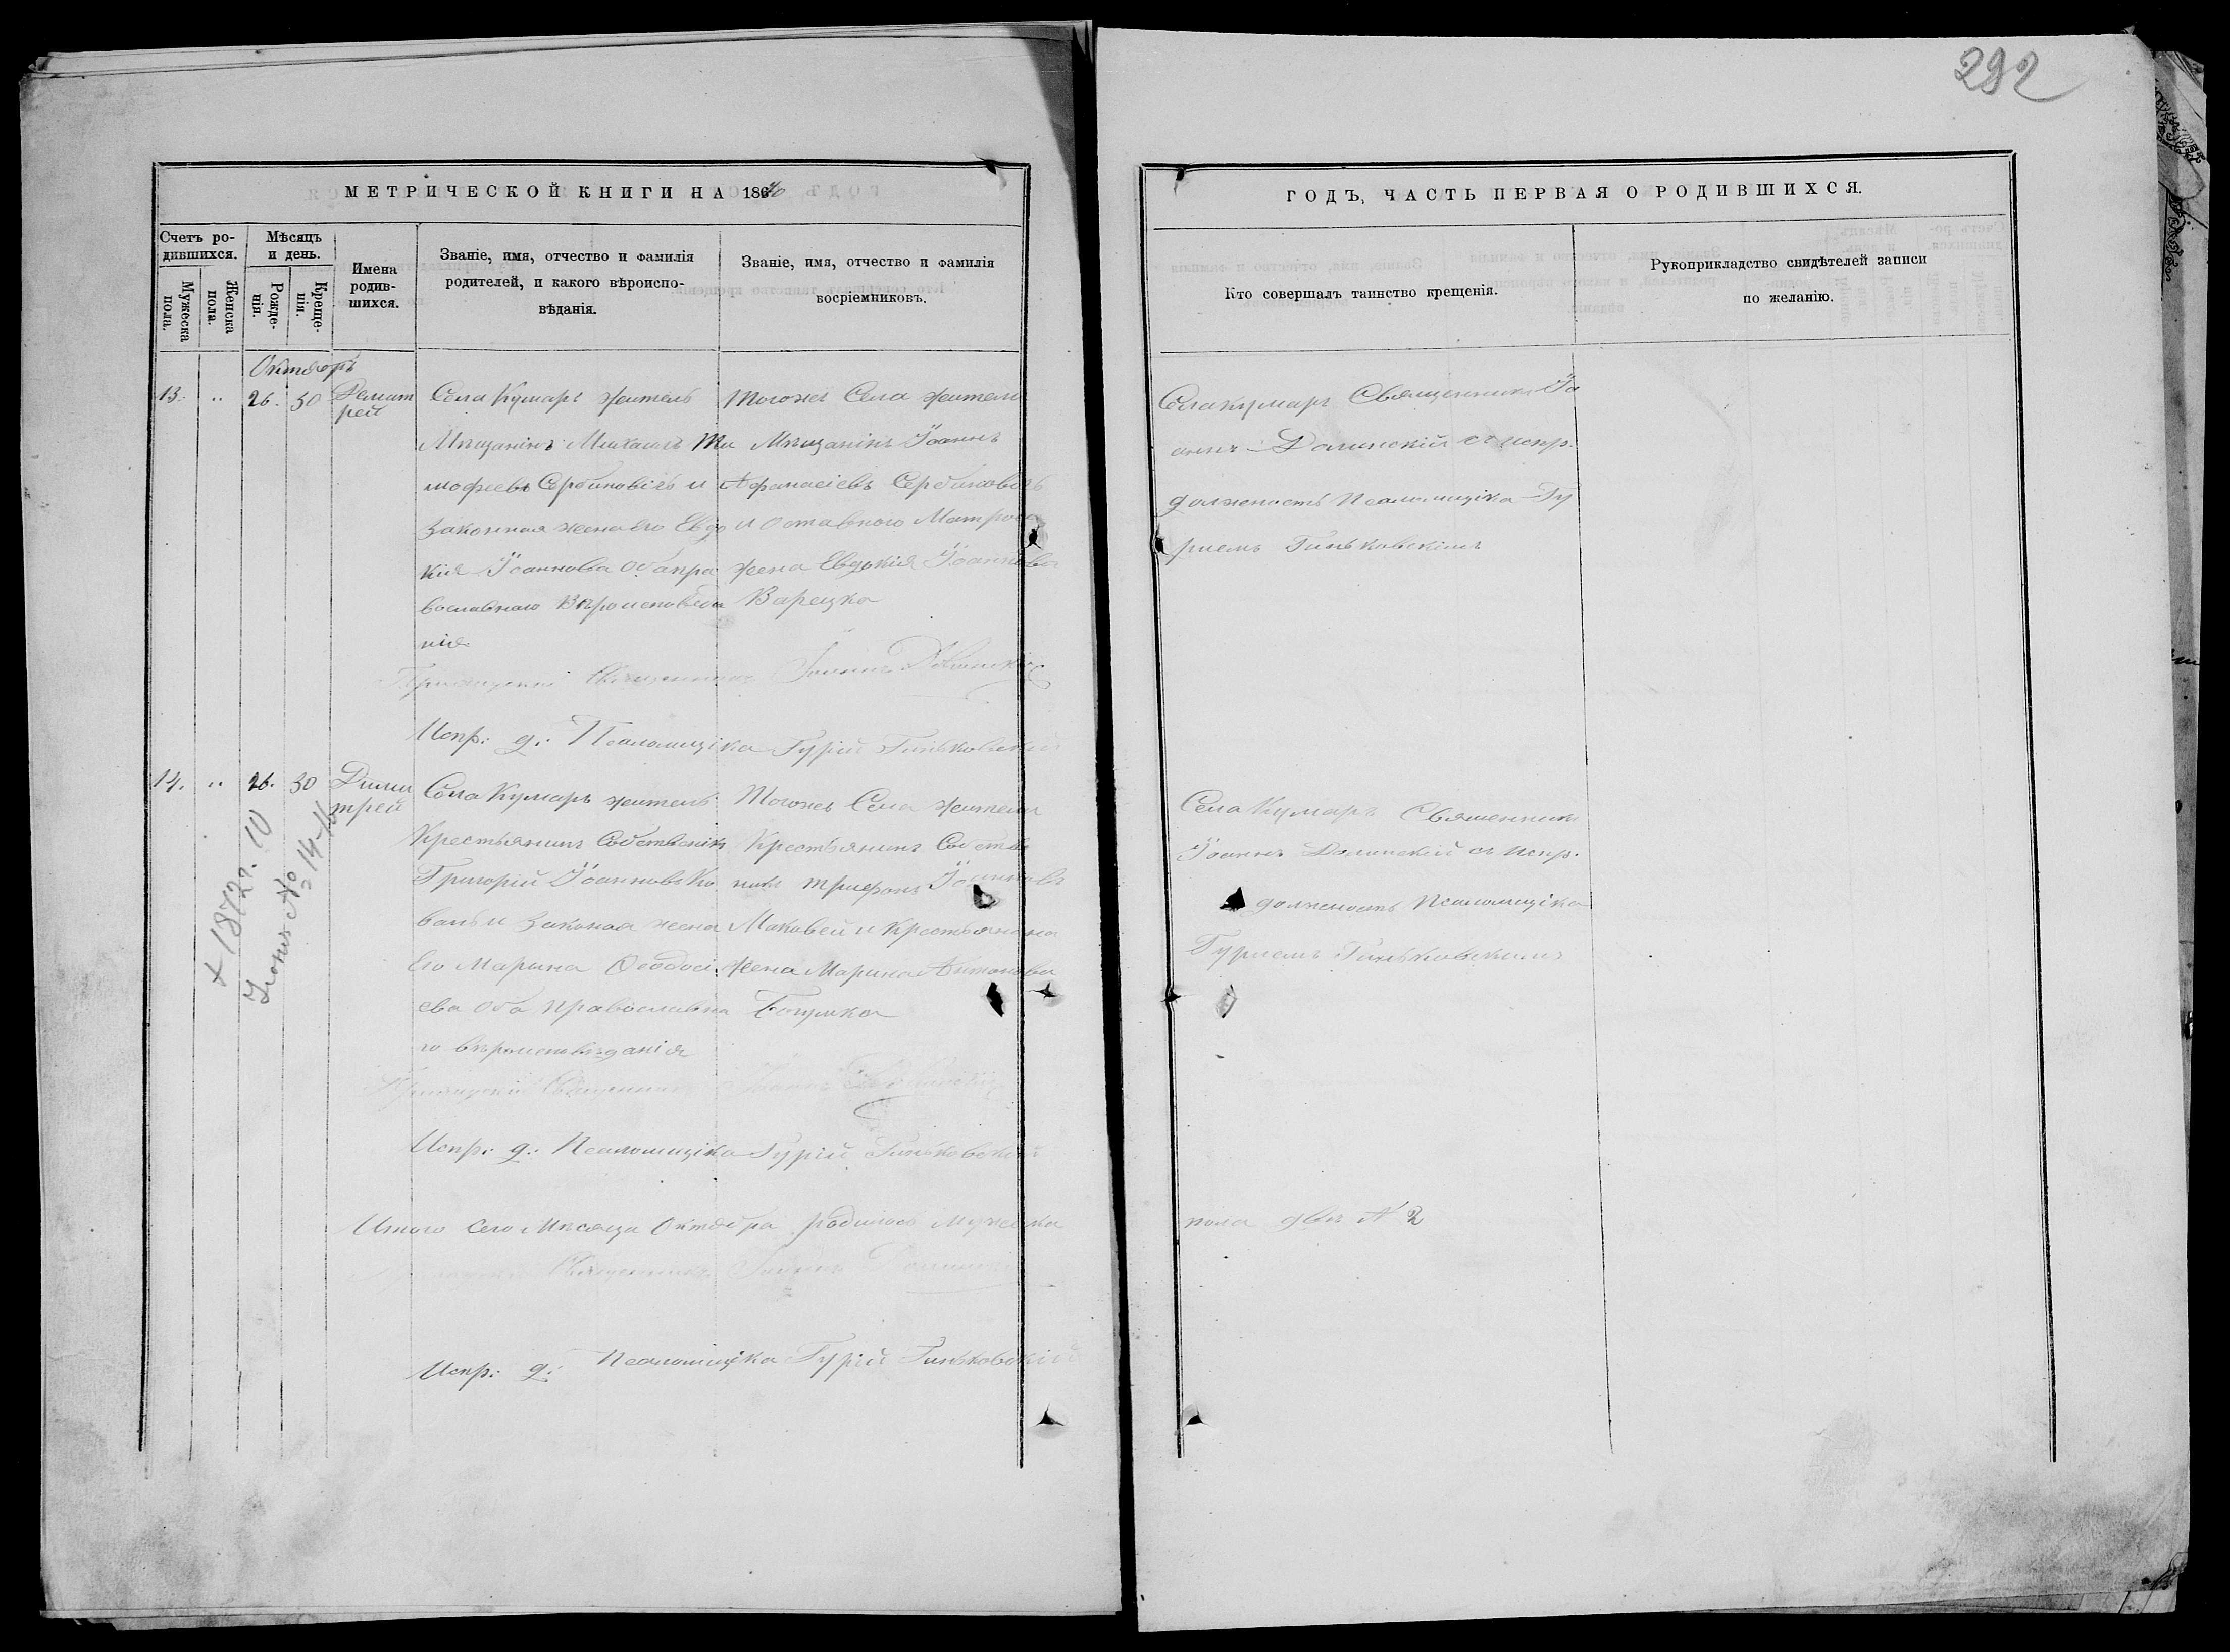 292
МЕТРИЧЕСКОЙ КНИГИ НА 186
ГОДЪ, ЧАСТЬ ПЕРВАЯ О РОДИВШИХСЯ.
Счетъ ро-
дившихся.
Мужеска
пола.
Женска
пола.
Мѣсяцъ
и день.
Рожде-
нія.
Креще-
нія.
Имена
родив-
шихся.
Званіе, имя, отчество и фамилія
родителей, и какого вѣроиспо-
вѣданія.
Званіе, имя, отчество и фамилія
восріемниковъ.
Кто совершалъ таинство крещенія.
Рукоприкладство свидѣтелей записи
по желанію.
Октябрь
13. " 26. 30
Села Кумаръ житель
Мѣщанинъ Михаилъ Ти
мофеевъ Сербиновичъ и
законная жена его Евдо
кія Іоаннова оба пра
вославнаго Вѣроисповѣда
нія
Тогоже Села жители
Мѣщанинъ Іоаннъ
Афанасіевъ Сербиновичъ
и Оставного Матроса
жена Евдокія Іоаннова
Варецка
Села Кумаръ Священникъ Іо
аннъ Долинскій съ испр.
должность Псаломщика Гу
риемъ Гиньковскимъ
Приходскій Священникъ Іоаннъ Долинскій
Испр: д: Псаломщика Гурій Гиньковскій
14. " 26. 30 Дими
трей
Села Кумаръ житель
Крестьянинъ Собственикъ
Григорій Іоанновъ Ко
валь и Законая жена
Его Марина Феодосі
ева Оба Православна
го вѣроисповѣданія
Тогоже Села жители
Крестьянинъ Собстве
никъ Трифонъ Іоанновъ
Маковей и Крестьянина
жена Марина Антонова
Села Кумаръ Священникъ
Іоаннъ Долинскій съ испр.
должность Псаломщика
Гуриемъ Гиньковскимъ
+ 1872 г. 10
Іюня № 14
Приходскій Священникъ Іоаннъ Долинскій
Испр: д: Псаломщика Гурій Гиньковскій
Итого Сего Мѣсяца Октября родилось Мужеска
пола два № 2
Священникъ Іоаннъ Долинскій
Испр: д: Псаломщика Гурій Гиньковскій